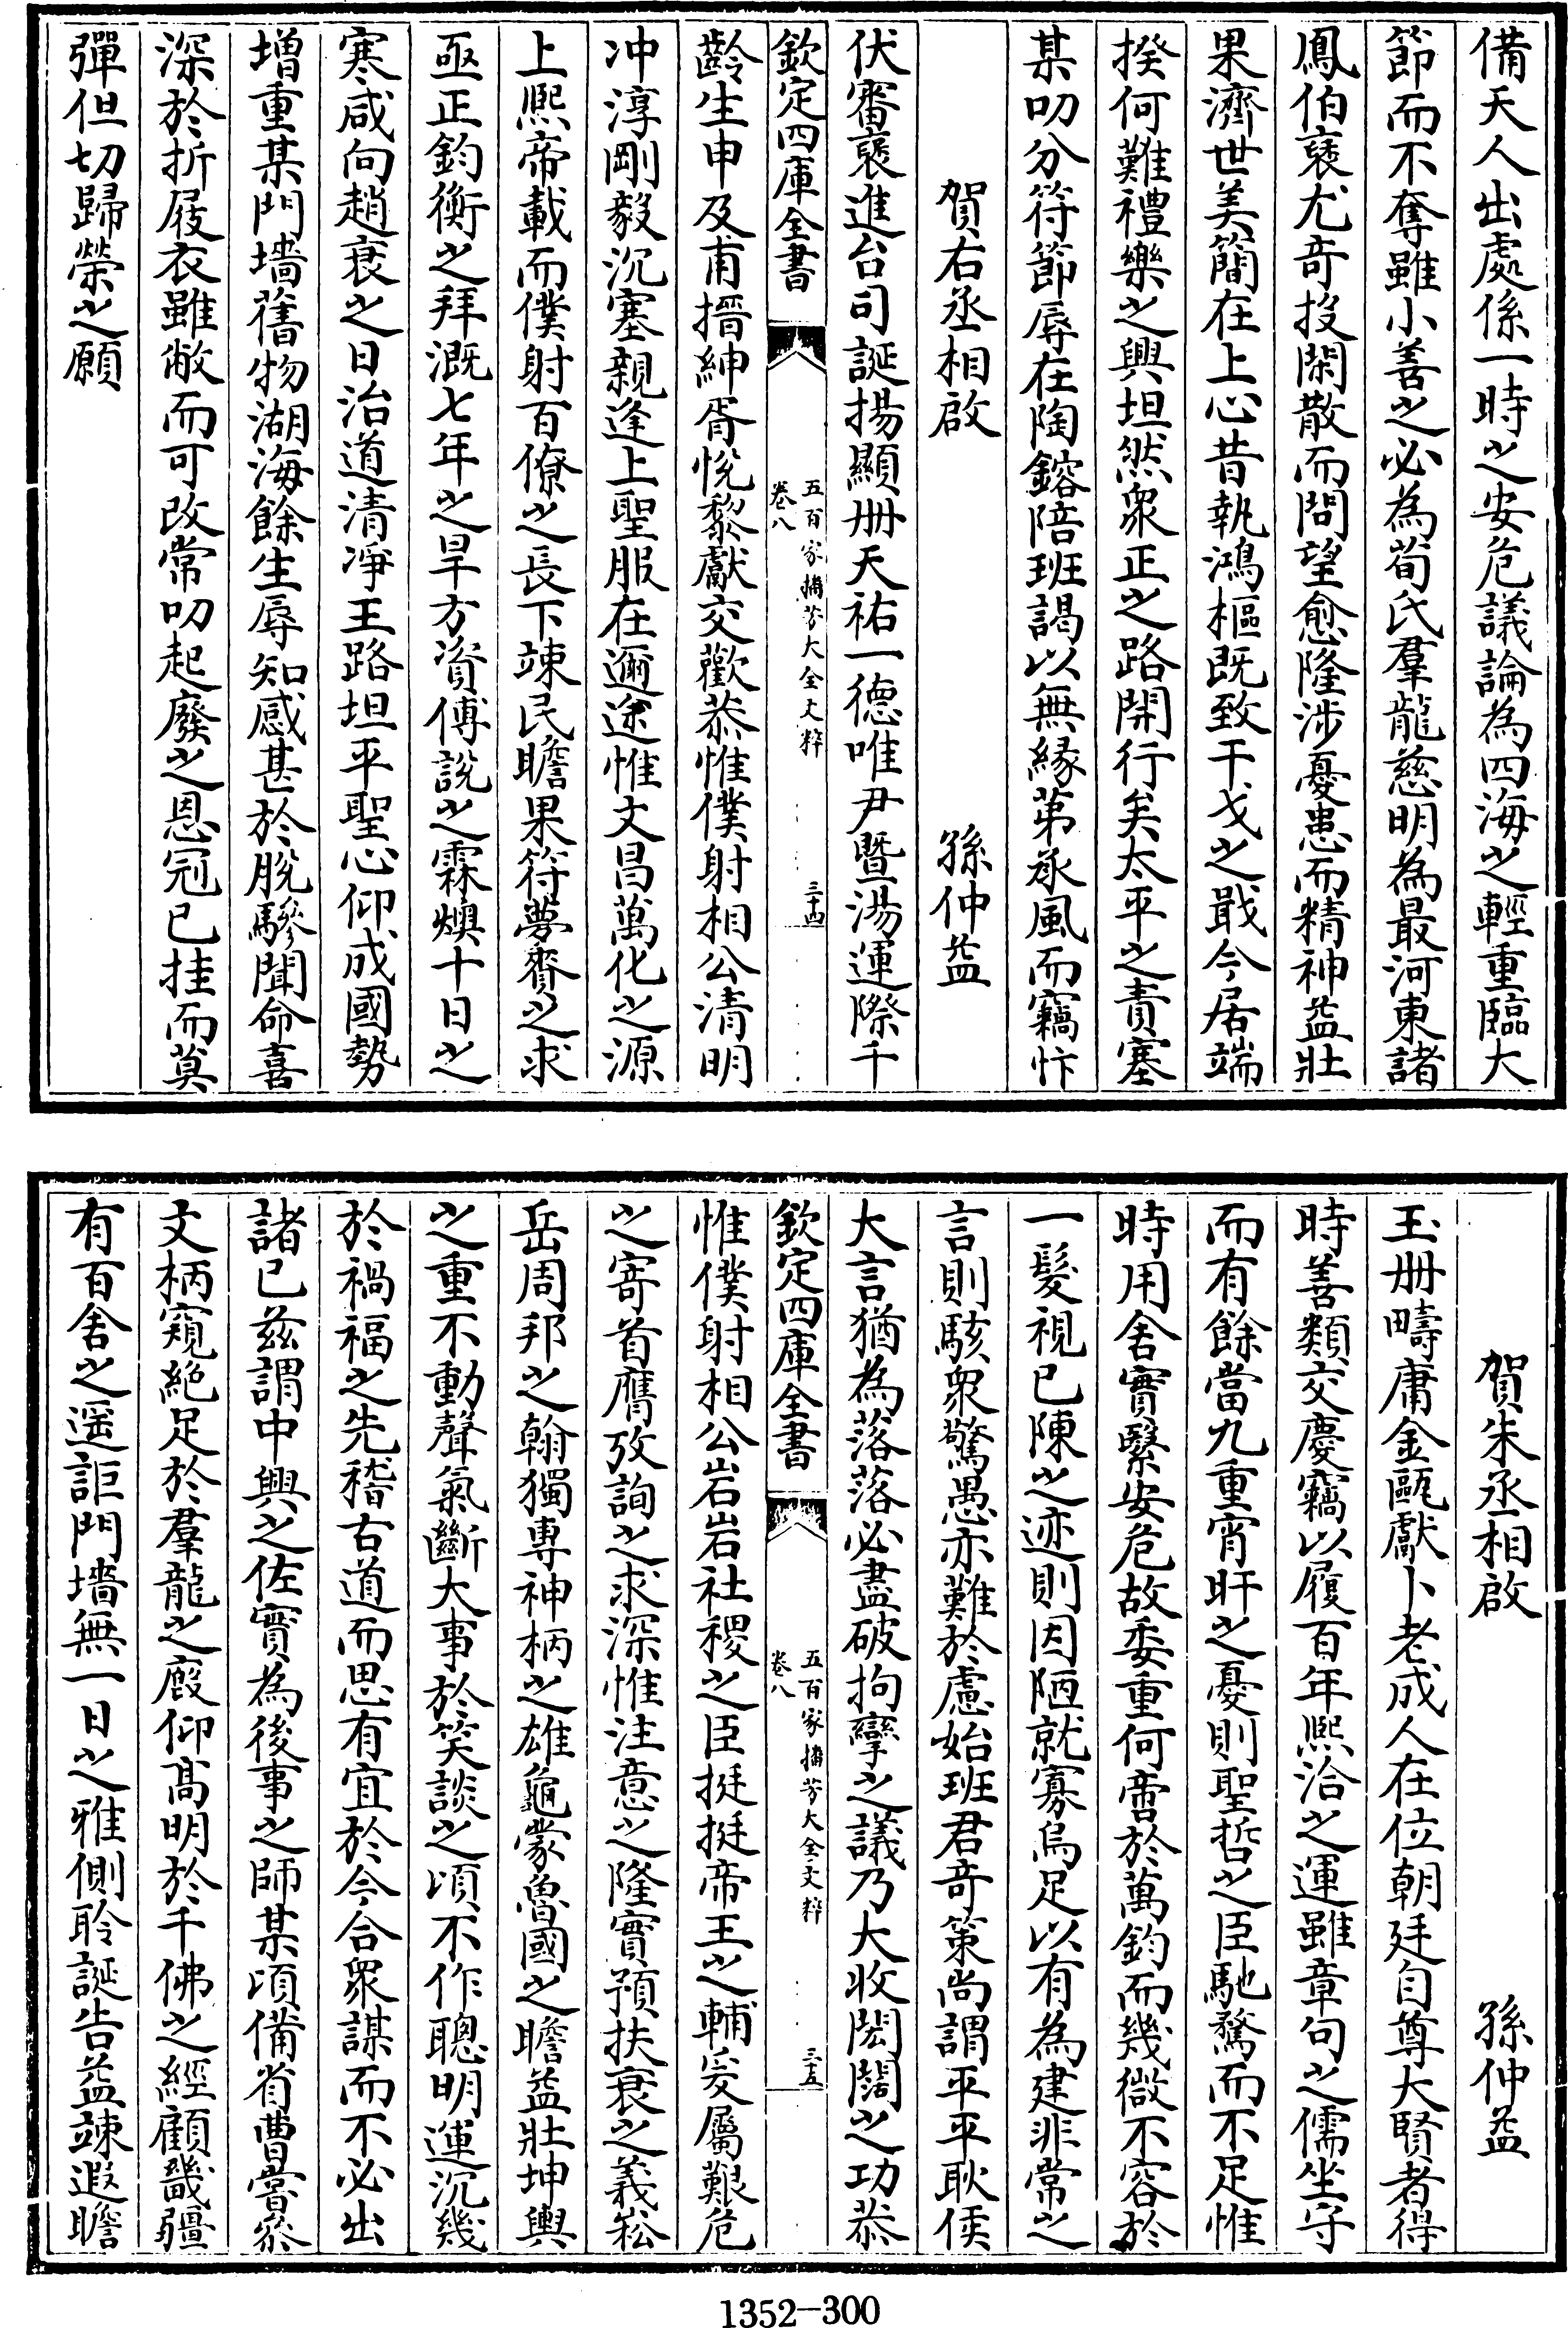 備天人出處係一時之安危議論為四海之輕重臨大
節而不奪雖小善之必為荀氏羣龍慈明為最河東諸
鳳伯褎尤奇投閑散而問望愈隆涉憂患而精神益壯
果濟世美簡在上心昔執鴻樞既致干戈之戢今居端
揆何難禮樂之興坦然衆正之路開行矣太平之責塞
某叨分符節辱在陶鎔陪班謁以無縁第承風而竊忭
賀右丞相啟 孫仲益
伏審褎進台司誕揚顯册天祐一德唯尹暨湯運際千
欽定四庫全書
五百家播芳大全文粹
卷八
三十四
齡生申及甫搢紳胥悅黎獻交歡恭惟僕射相公清明
冲淳剛毅沉塞親逢上聖服在邇途惟文昌萬化之源
上熙帝載而僕射百僚之長下竦民瞻果符夢賚之求
亟正鈞衡之拜溉七年之旱方資傅説之霖燠十日之
寒咸向趙衰之日治道清淨王路坦平聖心仰成國勢
增重某門墻舊物湖海餘生辱知感甚於脫驂聞命喜
深於折屐衣雖敝而可改常叨起廢之恩冠已挂而莫
彈但切歸榮之願
賀朱丞相啟 孫仲益
玉册疇庸金甌獻卜老成人在位朝廷自尊大賢者得
時善類交慶竊以履百年熙洽之運雖章句之儒坐守
而有餘當九重宵旰之憂則聖哲之臣馳騖而不足惟
時用舍實繫安危故委重何啻於萬鈞而幾微不容於
一髮視已陳之迹則因陋就寡烏足以有為建非常之
言則駭衆驚愚亦難於慮始班君奇策尚謂平平耿侯
大言猶為落落必盡破拘攣之議乃大收閎闊之功恭
欽定四庫全書
五百家播芳大全文粹
卷八
三十五
惟僕射相公岩岩社稷之臣挺挺帝王之輔爰屬艱危
之寄首膺攷詢之求深惟注意之隆實預扶衰之義崧
岳周邦之翰獨專神柄之雄龜蒙魯國之瞻益壯坤輿
之重不動聲氣斷大事於笑談之頃不作聰明運沉幾
於禍福之先稽古道而思有宜於今合衆謀而不必出
諸已兹謂中興之佐實為後事之師某頃備省曹嘗叅
文柄窺絶足於羣龍之廐仰髙明於千佛之經顧畿疆
有百舍之遥詎門墻無一日之雅側聆誕告益竦遐瞻
1352-300